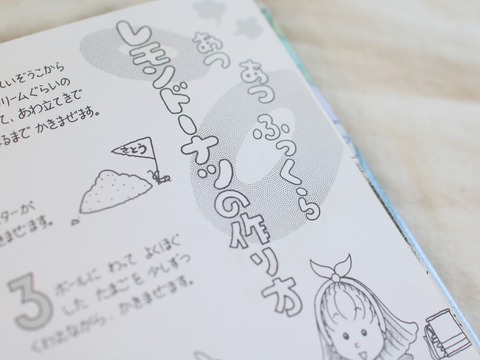 あつ あつ ふっくら
レモンドーナツの作り方
いぞうこから
リームぐらいの
て、あわ立てきで
るまで かきまぜます。
さとう
ターが
まぜます。
3
ボールに わって よくほぐ
した たまごを 少しずつ
くわえながら、かきまぜます。